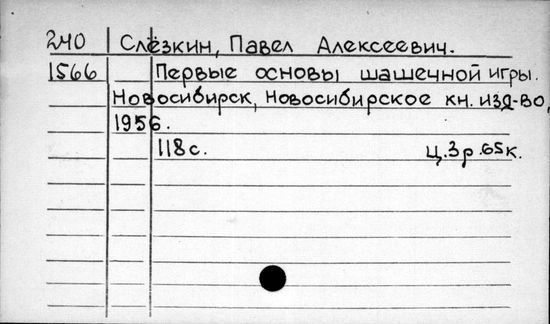 240 Слёзкин, Павел Алексеевич.
1566 Первые основы шашечной игры.
Новосибирск, Новосибирское кн. изд-во,
1956.
118с. Ц.3р.65к.